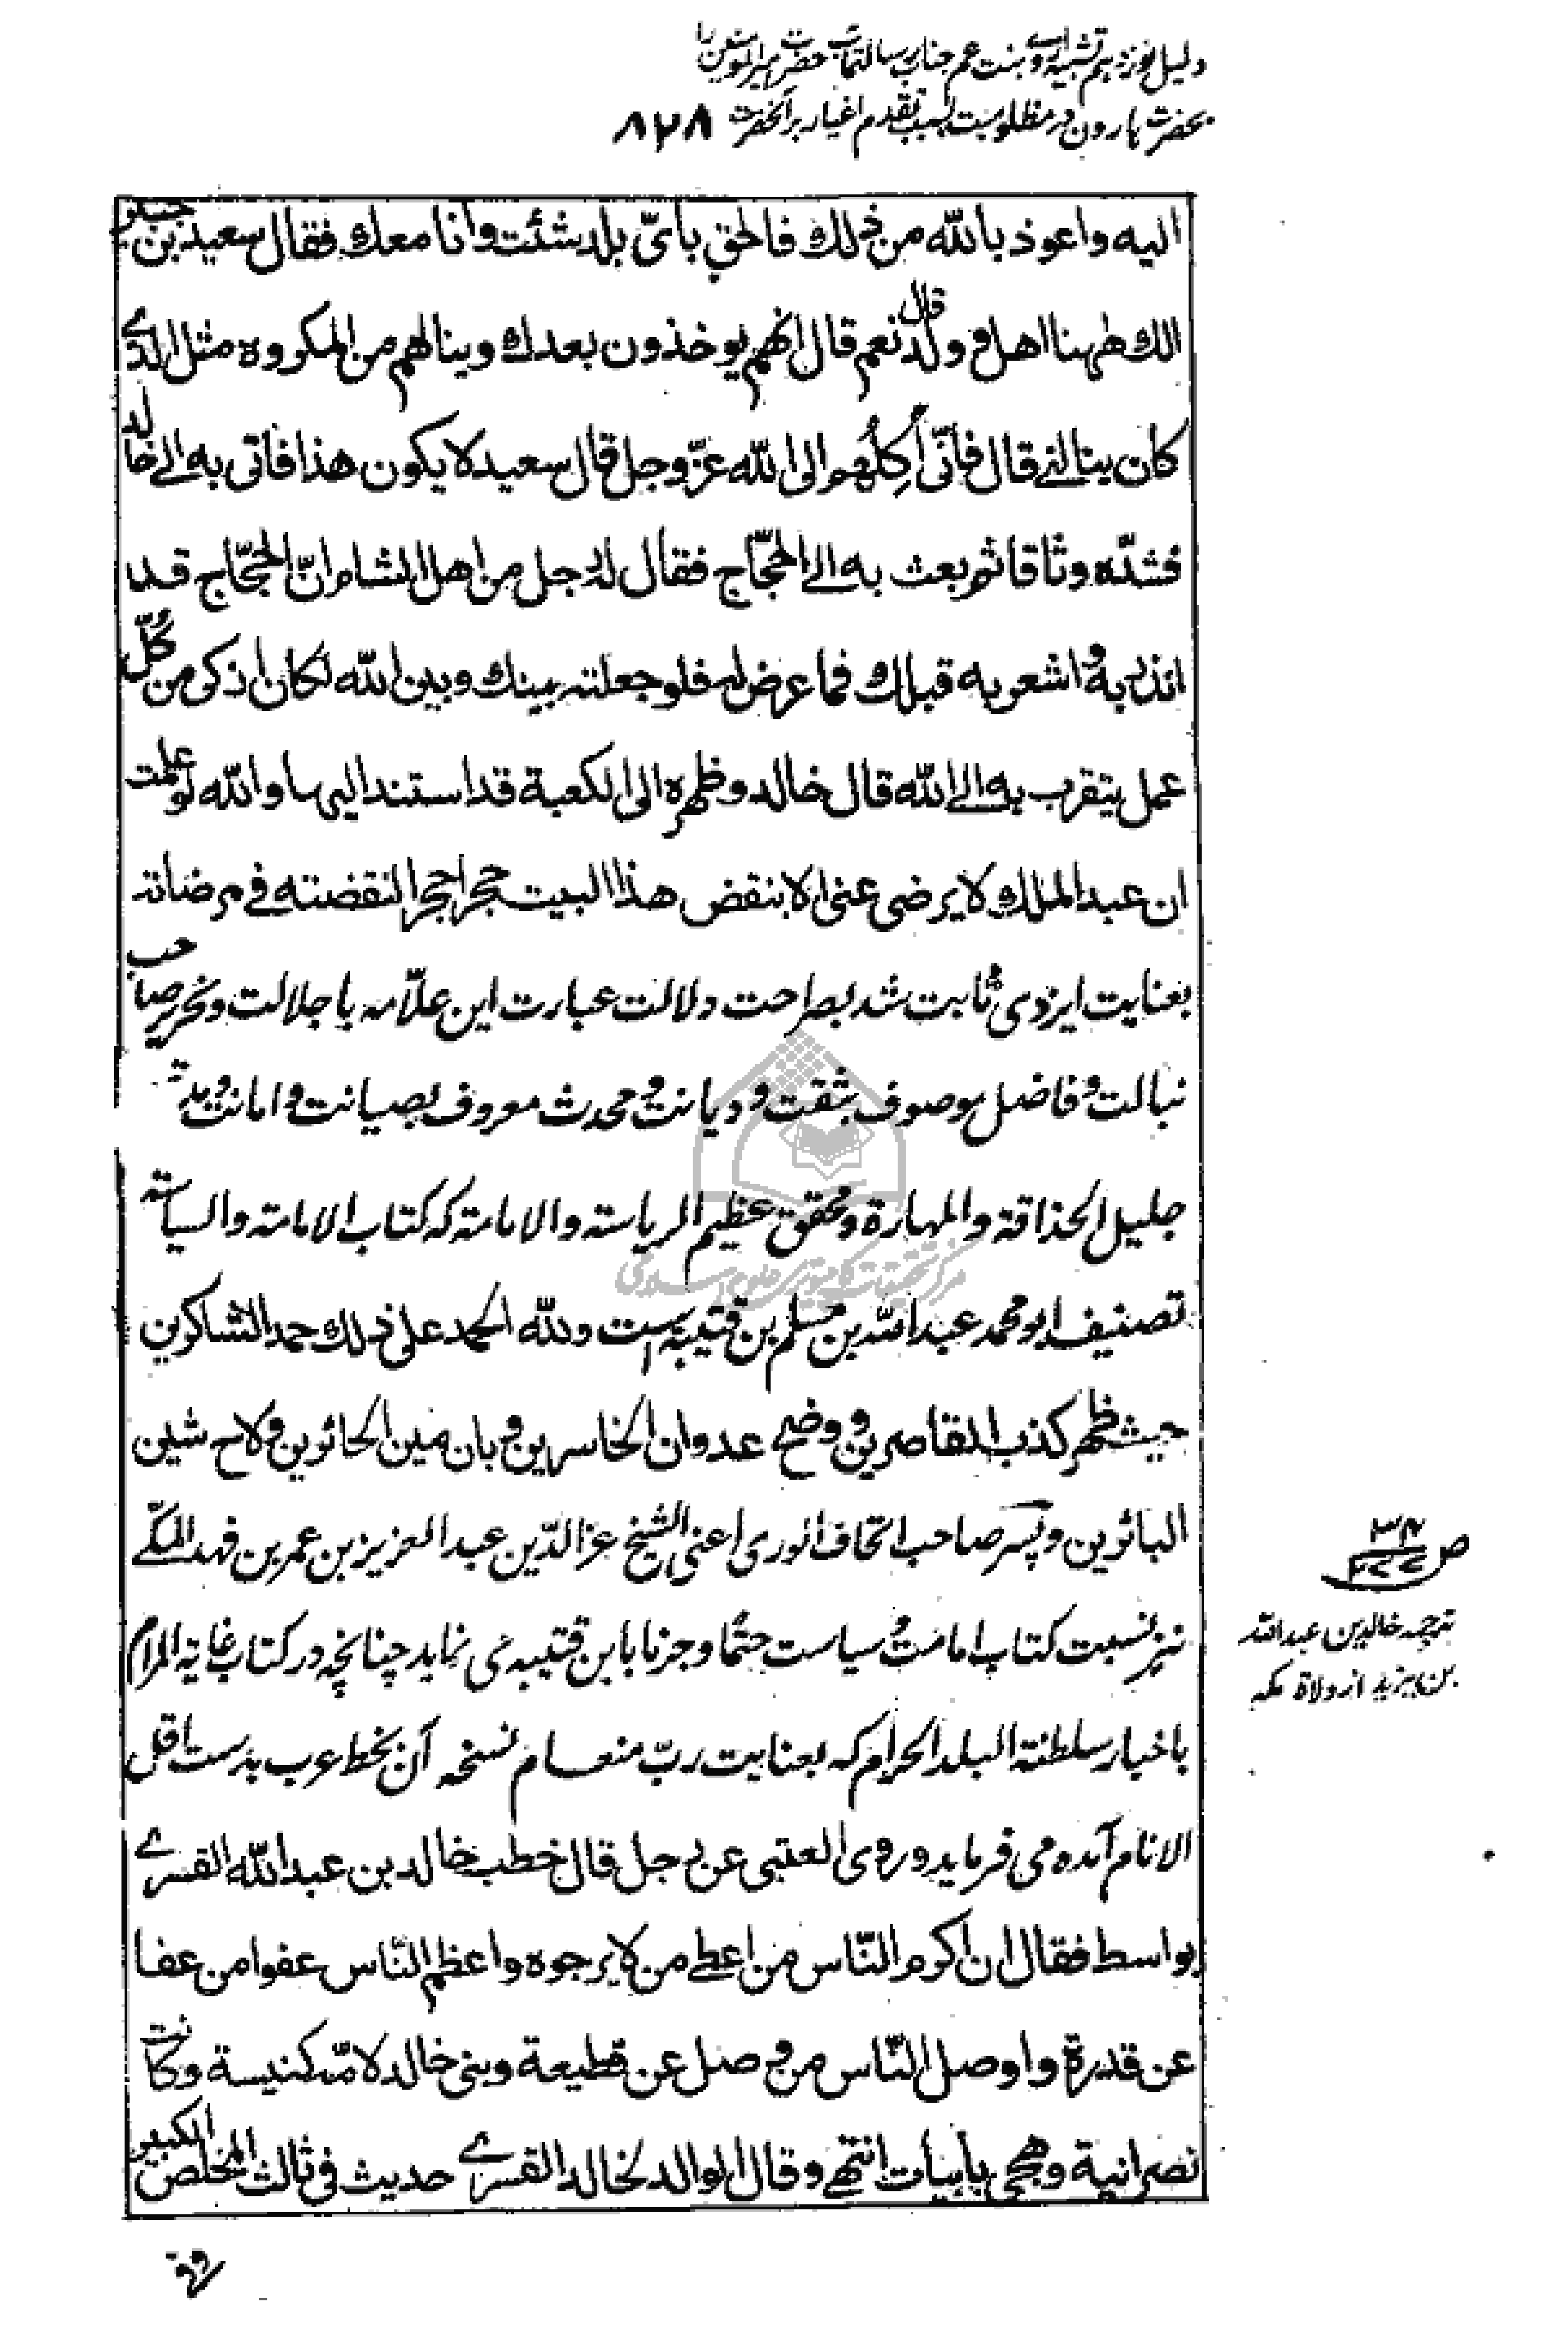 دلیل نوزدهم تشبیه ابن عم جناب رسالتمآب حضرت امیرالمومنین را
بحضرت هارون در مظلومیت بسبب تقدم اغیار بر آنحضرت ۸۷۸
الیه واعوذ بالله من ذلك فالحق بایّ بلد شئت وانا معك فقال سعید بن جبیر
الك ههنا اهل و ولد قال نعم قال انهم یوخذون بعدك وینالهم من المکروه مثل الذے
کان ینالنے قال فانّی اَکِلُهُم الی الله عزّ وجل قال سعید لا یکون هذا فاتی به الے خالد
فشدّه وثاقا ثم بعث به الے الحجّاج فقال له رجل من اهل الشام انّ الحجّاج قد
انذر به واشعر به قبلك فما عرض له فلو جعلته بینك وبین الله لکان ازکی من کلّ
عمل یتقرب به الے الله قال خالد وظهره الی الکعبة قد استند الیها والله لو علمت
ان عبد الملك لا یرضی عنی الا بنقض هذا البیت حجرا حجرا لنقضته فی مرضاته
بعنایت ایزدی ثابت شد بصراحت دلالت عبارت این علّامه با جلالت ونحریر صاحب
نبالت وفاضل موصوف بثقت و دیانت ومحدث معروف بصیانت وامانت و
جلیل الحذاقة والمهارة ومحقق عظیم الریاسته والامامته که کتاب الامامته والسیاسته
تصنیف ابو محمد عبدالله بن مسلم بن قتیبه است ولله الحمد علی ذلك حمد الشاکرین
حیث ظهر کذب القاصرین و وضح عدوان الخاسرین وبان مین الحائرین ولاح شین
البائرین وپسر صاحب اتحاف الوری اعنی الشیخ عزّ الدّین عبد العزیز بن عمر بن فهد المکّے
نیز نسبت کتاب امامت وسیاست حتمًا وجزما بابن قتیبه می نماید چنانچه در کتاب غایة المرام
باخبار سلطنة البلد الحرام که بعنایت ربّ منعام نسخه آن بخط عرب بدست اقل
الانام آمده می فرماید وروی العتبی عن رجل قال خطب خالد بن عبد الله القسرے
بواسط فقال ان اکرم النّاس من اعطے من لا یرجوه واعظم النّاس عفوا من عفا
عن قدرة واوصل النّاس من وصل عن قطیعة وبنی خالد لامّه کنیسة وکانت
نصرانیة وهجی بابیات انتهے وقال الوالد لخالد القسرے حدیث فی ثالث المخلص الکبیر
ترجمه خالد بن عبد الله
بن یزید از ولاة مکه